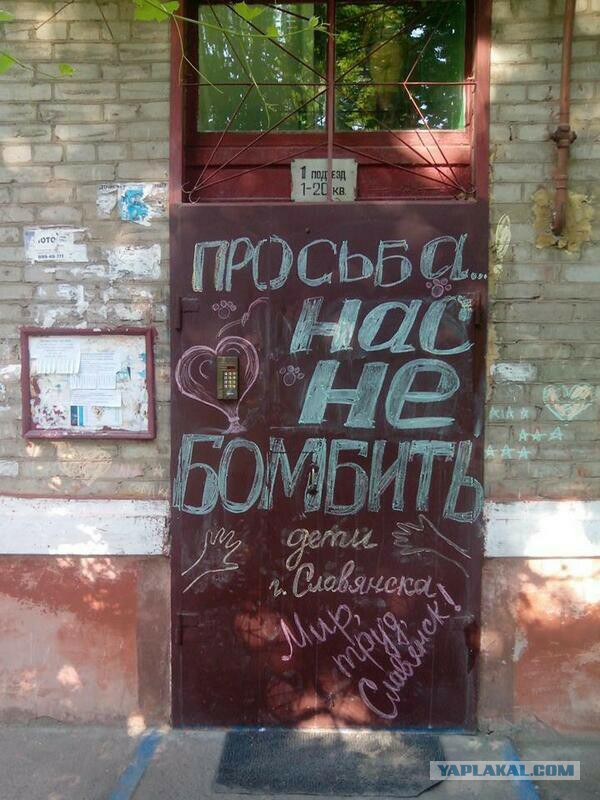 1 подъезд
1-20 кв.
ПРОСЬБА...
нас
не
БОМБИТЬ
дети
г. Славянска
Мир,
труд,
Славянск!
YAPLAKAL.COM